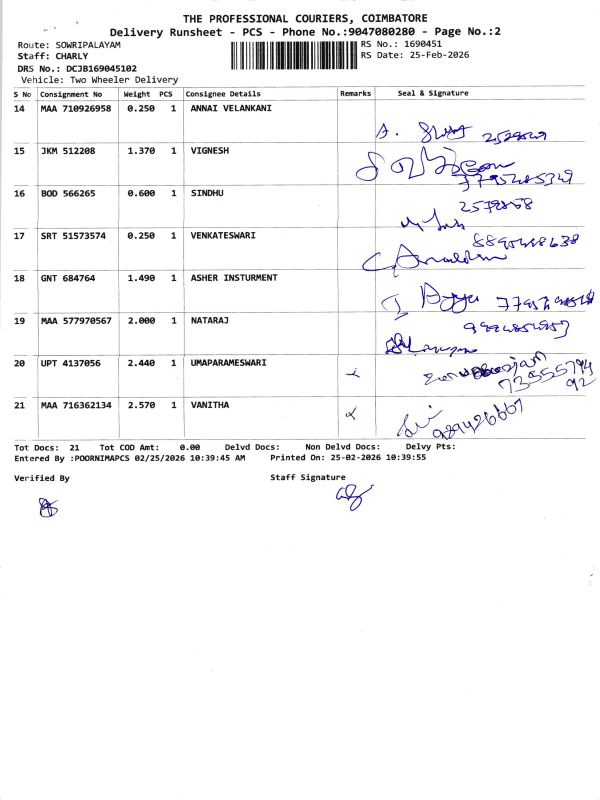 THE PROFESSIONAL COURIERS, COIMBATORE
Delivery Runsheet - PCS - Phone No.:9047080280 - Page No.:2
Route: SOWRIPALAYAM RS No.: 1690451
Staff: CHARLY RS Date: 25-Feb-2026
DRS No.: DCJB169045102
Vehicle: Two Wheeler Delivery
S No Consignment No Weight PCS Consignee Details Remarks Seal & Signature
14 MAA 710926958 0.250 1 ANNAI VELANKANI
15 JKM 512208 1.370 1 VIGNESH
16 BOD 566265 0.600 1 SINDHU
17 SRT 51573574 0.250 1 VENKATESWARI
18 GNT 684764 1.490 1 ASHER INSTURMENT
19 MAA 577970567 2.000 1 NATARAJ
20 UPT 4137056 2.440 1 UMAPARAMESWARI
21 MAA 716362134 2.570 1 VANITHA
Tot Docs: 21 Tot COD Amt: 0.00 Delvd Docs: Non Delvd Docs: Delvy Pts:
Entered By :POORNIMAPCS 02/25/2026 10:39:45 AM Printed On: 25-02-2026 10:39:55
Verified By Staff Signature